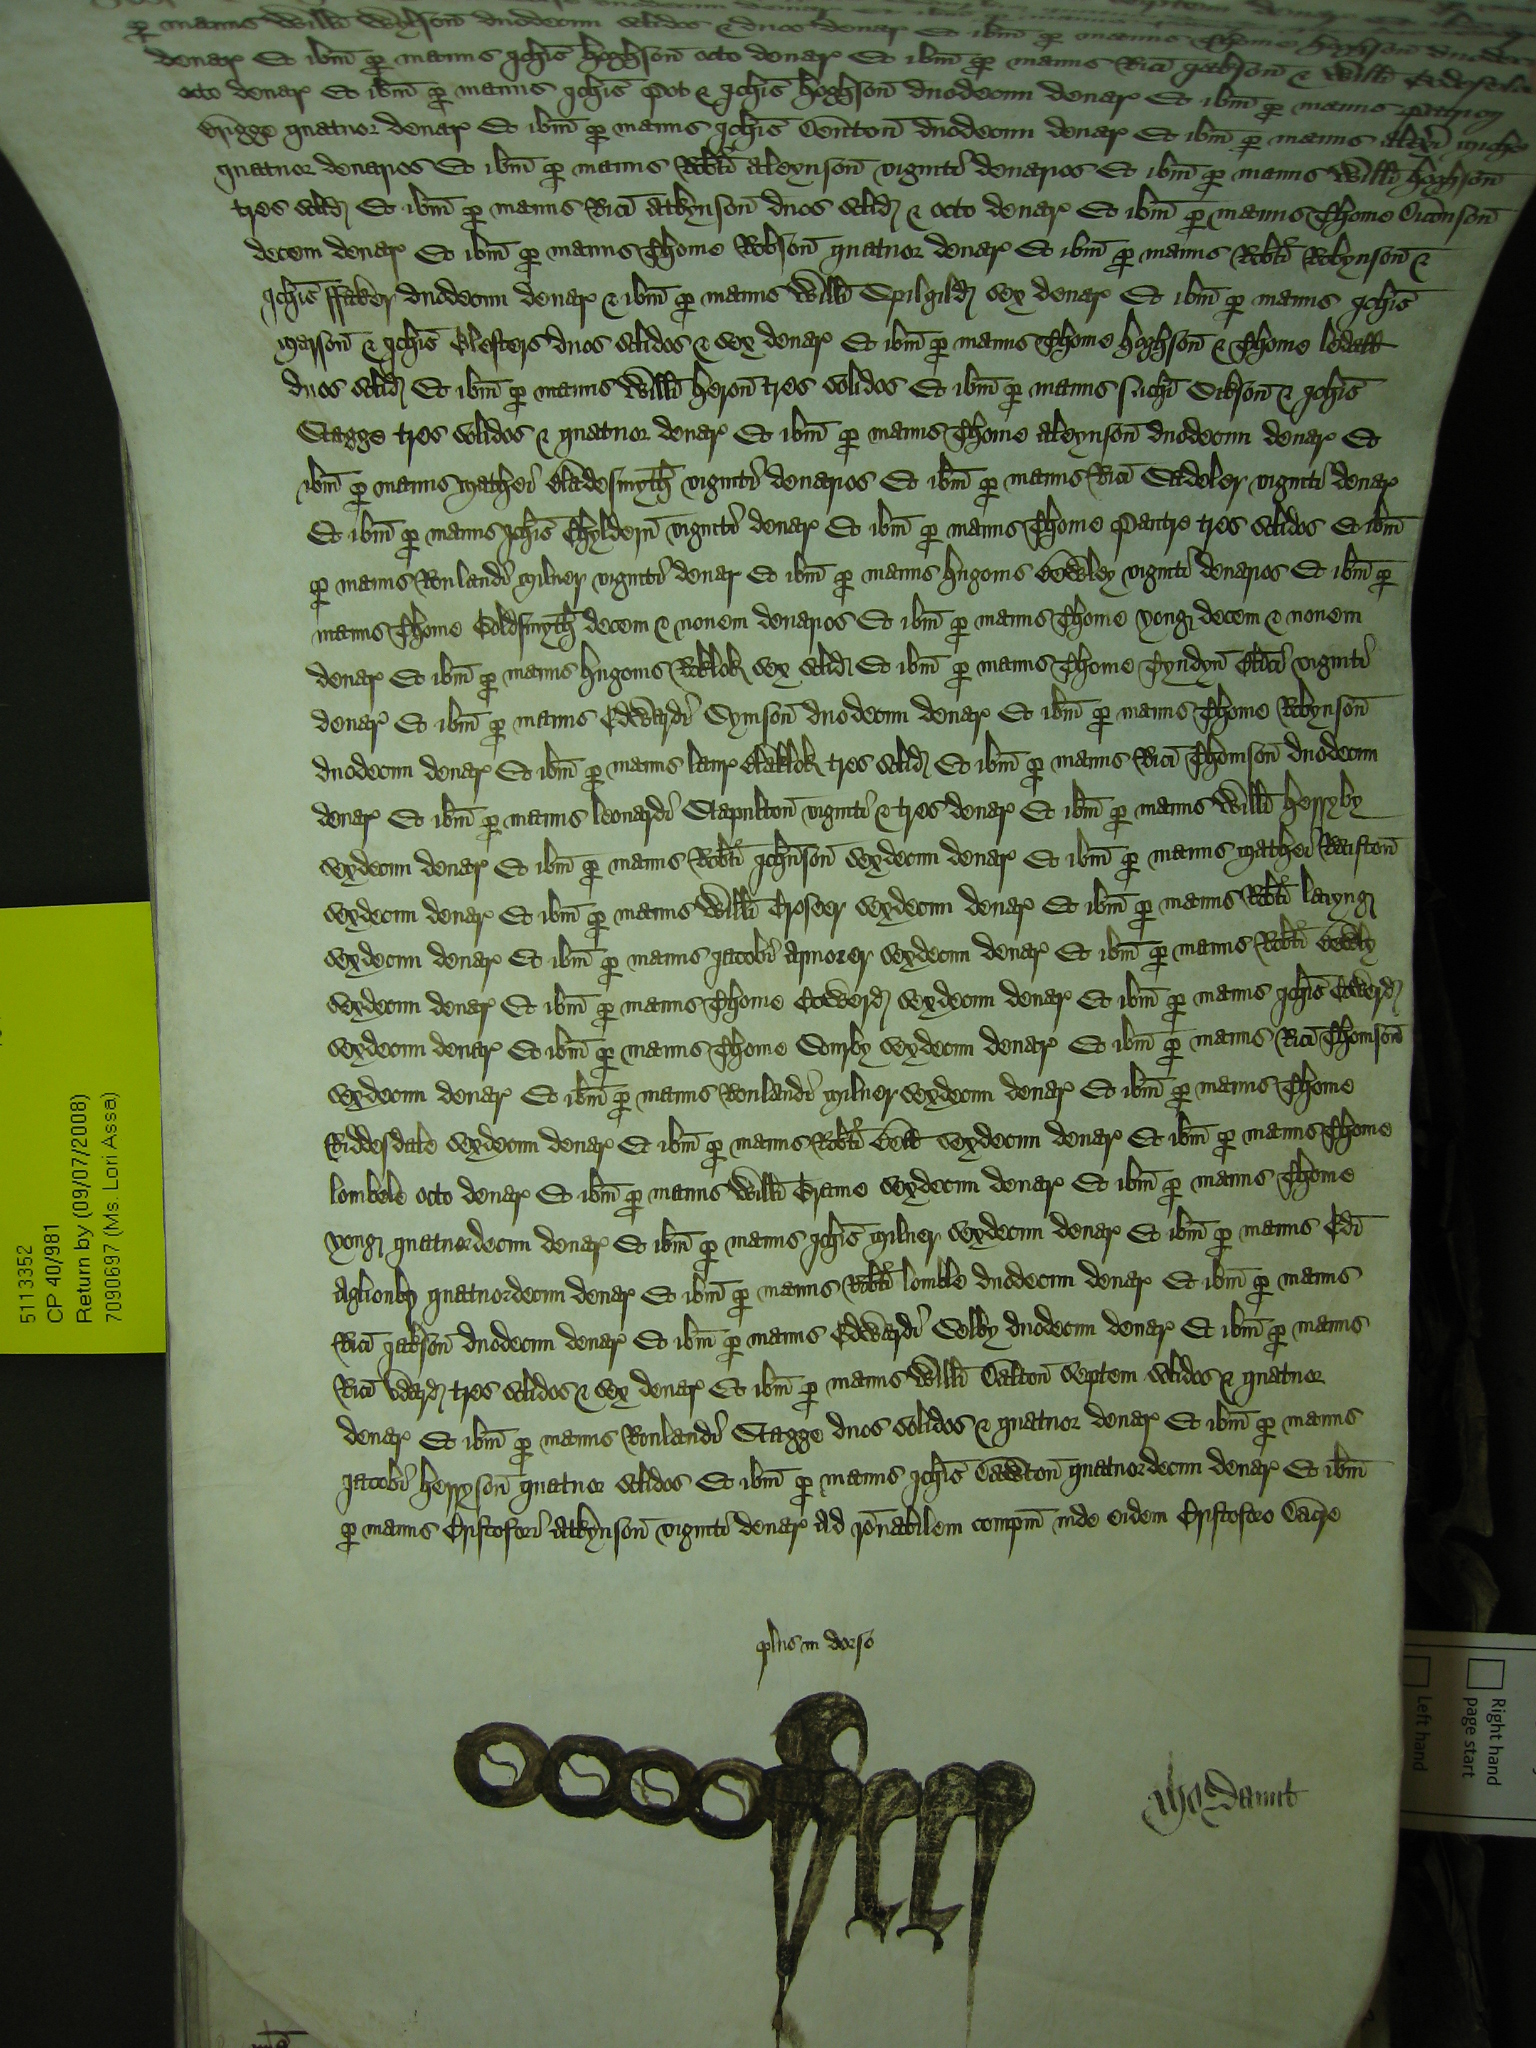 p manus Willi Wylson duodecim solidos & duos denar Et ibm p manus Thome Hoghson duodecim
denar Et ibm p manus Johis Hoghson octo denar Et ibm p manus Rici Jakson & Willi
octo denar Et ibm p manus Johis Pot & Johis Hoghson duodecim denar Et ibm p manus
Brigge quatuor denar Et ibm p manus Johis Denton duodecim denar Et ibm p manus Alexi
quatuor denarios Et ibm p manus Robti Aleynson viginti denarios Et ibm p manus Willi Hoghson
tres solid Et ibm p manus Rici Atkynson duos solid & octo denar Et ibm p manus Thome Diconson
decem denar Et ibm p manus Thome Robson quatuor denar Et ibm p manus Robti Robynson &
Johis ffaker duodecim denar & ibm p manus Willi Spilgild sex denar Et ibm p manus Johis
Marson & Johis Clesters duos solidos & sex denar Et ibm p manus Thome Hoghson & Thome
duos solid Et ibm p manus Willi Heron tres solidos Et ibm p manus Dikson & Johis
Stagge tres solidos & quatuor denar Et ibm p manus Thome Aleynson duodecim denar Et
ibm p manus Mathei Bladesmyth viginti denarios Et ibm p manus Rici Sadeler viginti denar
Et ibm p manus Johis Chyldern viginti denar Et ibm p manus Thome tres solidos Et ibm
p manus Roulandi Milner viginti denar Et ibm p manus Hugonis Bewley viginti denarios Et ibm p
manus Thome Goldsmyth decem & nonem denarios Et ibm p manus Thome Yong decem & nonem
denar Et ibm p manus Hugonis sex solid Et ibm p manus Thome Tyndyn Clici viginti
denar Et ibm p manus Edwardi Symson duodecim denar Et ibm p manus Thome Robynson
duodecim denar Et ibm p manus Laur Blaklok tres solid Et ibm p manus Rici Thomson duodecim
denar Et ibm p manus Leonardi Stapulton viginti & tres denar Et ibm p manus Willi Herryby
sexdecim denar Et ibm p manus Robti Johnson sexdecim denar Et ibm p manus Mathei
sexdecim denar Et ibm p manus Willi Croser sexdecim denar Et ibm p manus Robti Layng
sexdecim denar Et ibm p manus Jacobi Armorer sexdecim denar Et ibm p manus Robti Bewly
sexdecim denar Et ibm p manus Thome Coward sexdecim denar Et ibm p manus Johis Coward
sexdecim denar Et ibm p manus Thome Sourby sexdecim denar Et ibm p manus Rici Thomson
sexdecim denar Et ibm p manus Roulandi Milner sexdecim denar Et ibm p manus Thome
Riddesdale sexdecim denar Et ibm p manus Robti Bell sexdecim denar Et ibm p manus Thome
Lombele octo denar Et ibm p manus Willi Grame sexdecim denar Et ibm p manus Thome
Yong quatuordecim denar Et ibm p manus Johis Milner sexdecim denar Et ibm p manus Edi
Aglionby quatuordecim denar Et ibm p manus Robti Lomble duodecim denar Et ibm p manus
Rici Jakson duodecim denar Et ibm p manus Edwardi Solby duodecim denar Et ibm p manus
Rici tres solidos & sex denar Et ibm p manus Willi Dalton septem solidos & quatuor
denar Et ibm p manus Roulandi Stagge duos solidos & quatuor denar Et ibm p manus
Jacobi Herryson quatuor solidos Et ibm p manus Johis Dawton quatuordecim denar Et ibm
p manus Cristoferi Atkynson viginti denar Ad ronabilem compm inde eidem Cristofero Dacre
plus in dorso
5113352
CP 40/981
Return by (09/07/2008)
7090697 (Ms. Lori Assa)
Right hand
page start
Left hand